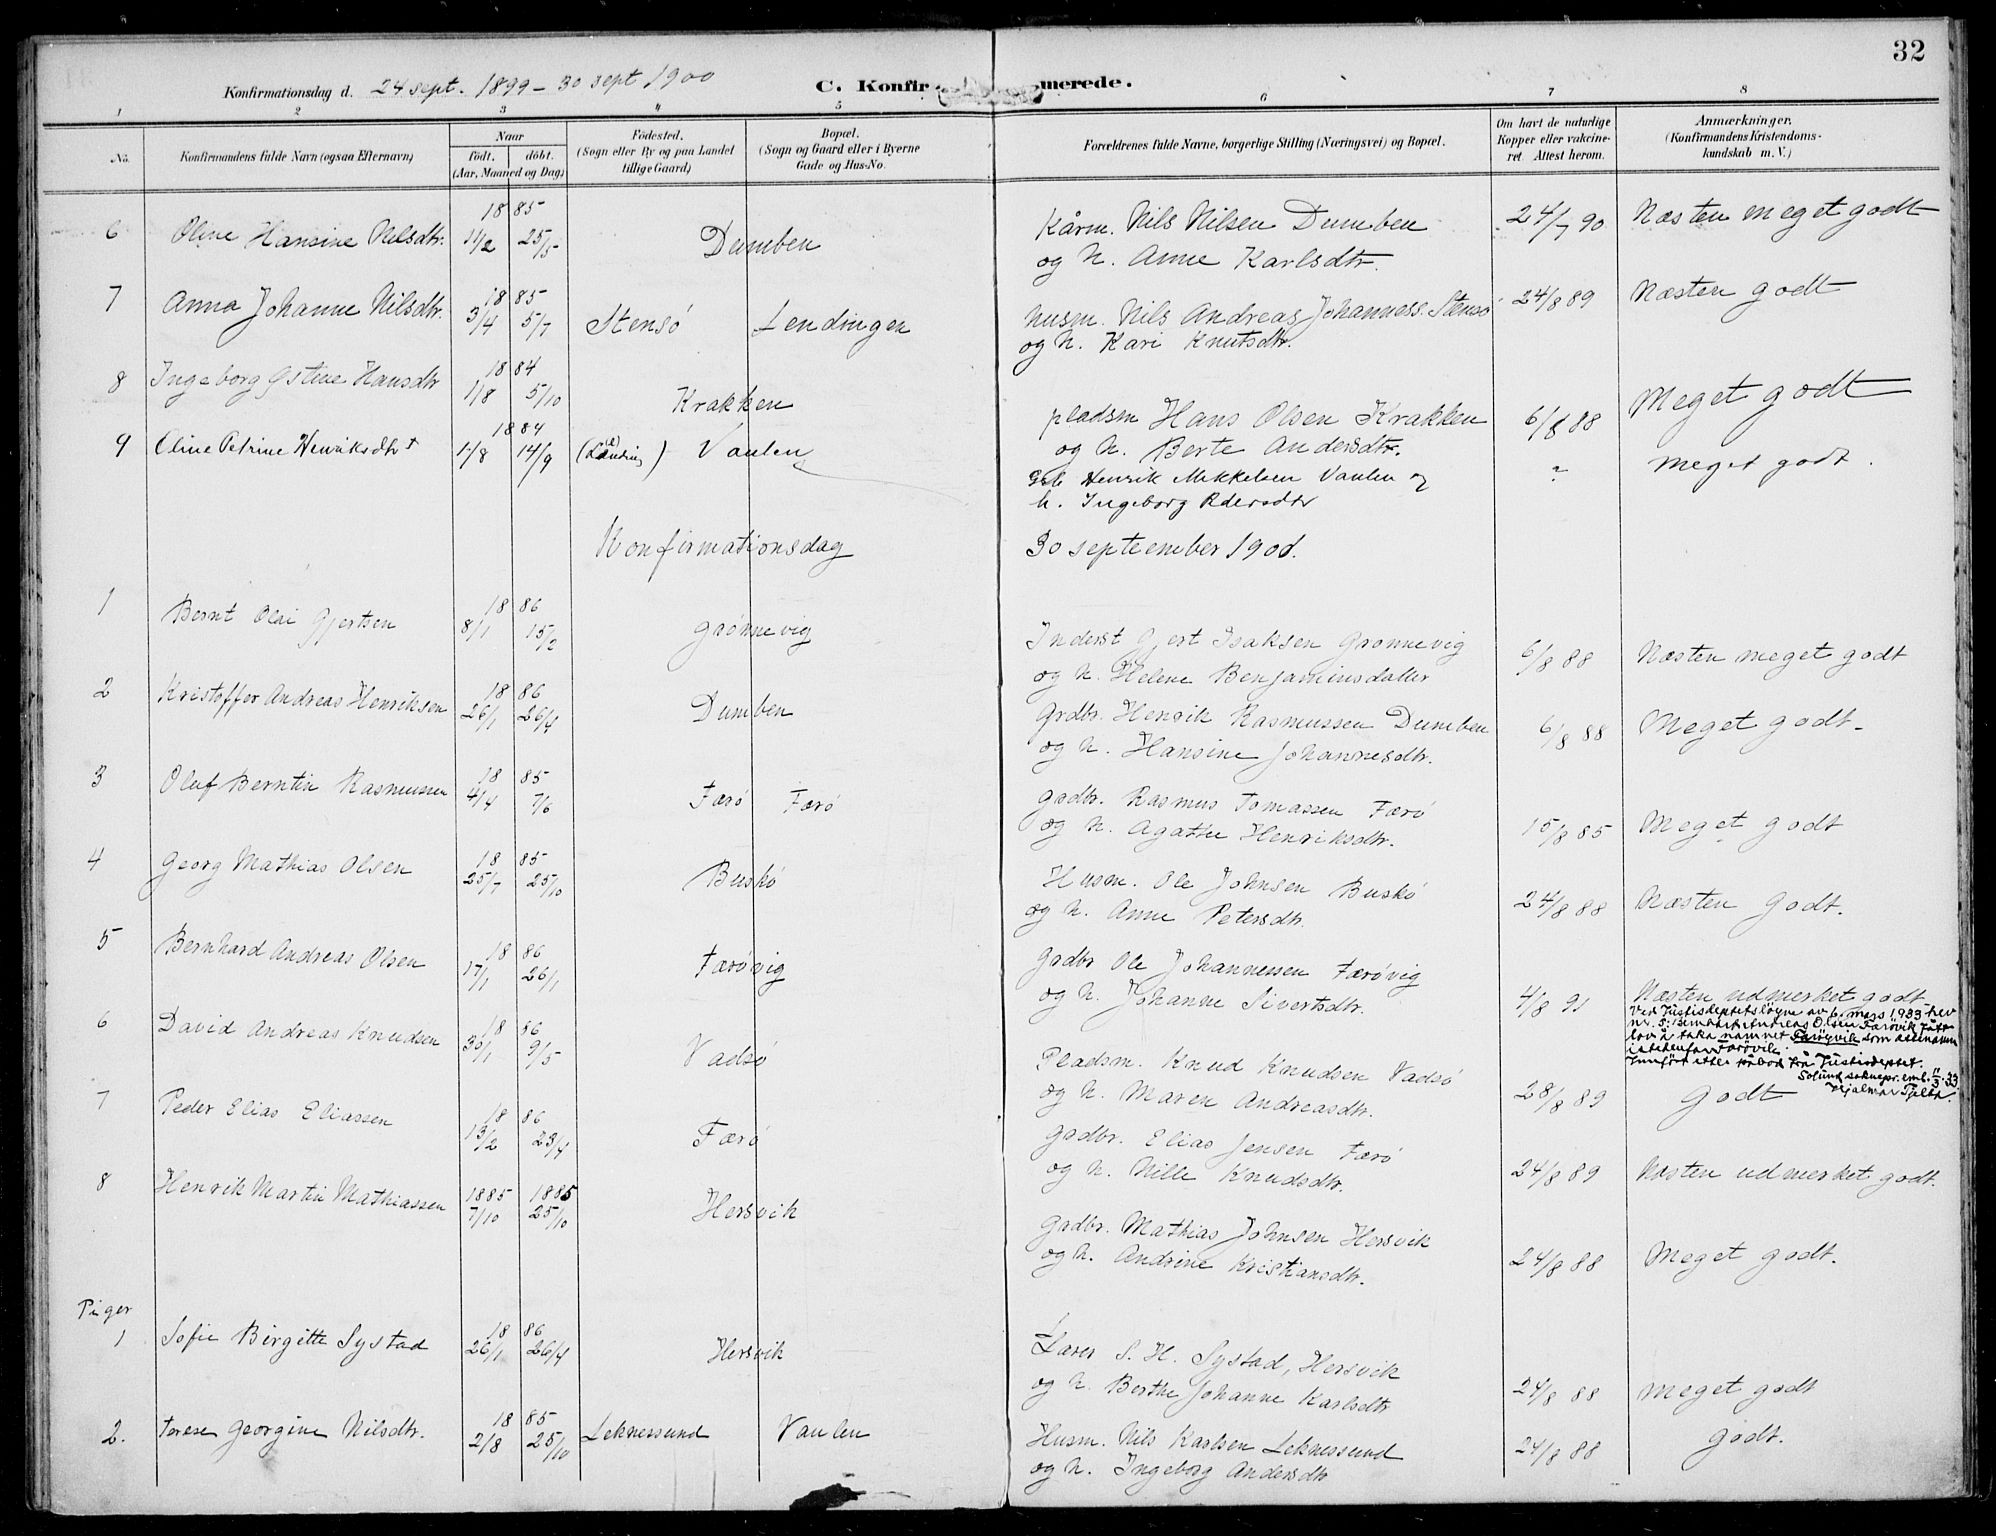 32
Konfirmationsdag d. 24 sept. 1899 - 30 sept 1900
C. Konfir merede.
1 2 3 4 5 6 7 8
No. Konfirmandens fulde Navn (ogsaa Efternavn)
Naar født, døbt. (Aar, Maaned og Dag)
Fødested. (Sogn eller By og paa Landet tillige Gaard)
Bopæl. (Sogn og Gaard eller i Byerne Gade og Hus-No.
Forældrenes fulde Navne, borgerlige Stilling (Næringsvei) og Bopæl.
Om havt de naturlige Kopper eller vakcineret. Attest herom.
Anmærkninger. (Konfirmandens Kristendomskundskab m. V.)
6 Oline Hansine Nilsdtr. 1885 11/2 25/5 Dumben Kårm. Nils Nilsen Dumben 24/7 90 Næsten meget godt
og h. Anne Karlsdtr.
7 Anna Johanne Nilsdtr. 1885 3/4 5/7 Stensö Lendingen husm. Nils Andreas Johanness. Stensö 24/8 89 Næsten godt
og h. Kari Knutsdtr.
8 Ingeborg Østine Hansdtr 1884 1/8 5/10 Krakken pladsm Hans Olsen Krakken 6/8 88 Meget godt
og h. Berte Andersdtr.
9 Oline Petrine Henriksdtr 1884 1/8 14/9 Vaulen Henrik Mikkelsen Vaulen og ? Meget godt.
h. Ingeborg Pdersdtr
Konfirmationsdag 30 september 1900.
1 Bernt Olai Gjertsen 1886 8/1 15/2 Grönnevig Inderst Gjert Isaksen Grönnevig 6/8 88 Næsten meget godt
og h. Helene Benjaminsdatter
2 Kristoffer Andreas Henriksen 1886 26/1 26/4 Dumben Grdbr. Henrik Rasmussen Dumben 6/8 88 Meget godt.
og h. Hansine Johannesdtr.
3 Oluf Berntin Rasmussen 1885 4/4 7/6 Færö Færö Grdbr. Rasmus Tomassen Færö 15/8 85 Meget godt
og h. Agathe Henriksdtr.
4 Georg Mathias Olsen 1885 25/7 25/10 Buskö Husm. Ole Johnsen Buskö 24/8 88 Næsten Godt.
og h. Anne Petersdtr.
5 Bernhard Andreas Olsen 1886 17/1 26/1 Færövig Grdbr Ole Johannessen Færövig 4/8 91 Næsten udmerket godt
og h. Johanne Sivertsdtr.
Ved Justisdeptets løyve av 6. mars 1933 hev
nr. 5: Bernhard Andreas Olsen Færövik fått
lov å taka namnet Færöyvik som ættenamn
istadenfor Færövik.
Innfört etter påbod frå Justisdeptet.
Solund sokneprest.emb. 11/3. 33.
Hjalmar
6 David Andreas Knudsen 1886 30/1 9/5 Vadsö Pladsm. Knud Knudsen Vadsö 28/8 89 Godt
og h. Maren Andreasdtr.
7 Peder Elias Eliassen 1886 13/2 23/4 Færö Grdbr. Elias Jensen Færö 24/8 89 Næsten udmerket godt.
og h. Nille Knudsdtr.
8 Henrik Martin Mathiassen 1885 7/10 1885 25/10 Hersvik Grdbr. Mathias Johnsen Hersvik 24/8 88 Meget godt.
og h. Andrine Kristiansdtr.
Piger
1 Sofie Birgitte Systad 1886 26/1 26/4 Hersvik Lærer S. H. Systad, Hersvik 24/8 88 Meget godt
og h. Berthe Johanne Karlsdtr
2. Terese Georgine Nilsdtr. 1885 2/8 25/10 Leknessund Vaulen Husm. Nils Karlsen Leknessund 24/8 88 Godt.
og h. Ingeborg Andersdtr